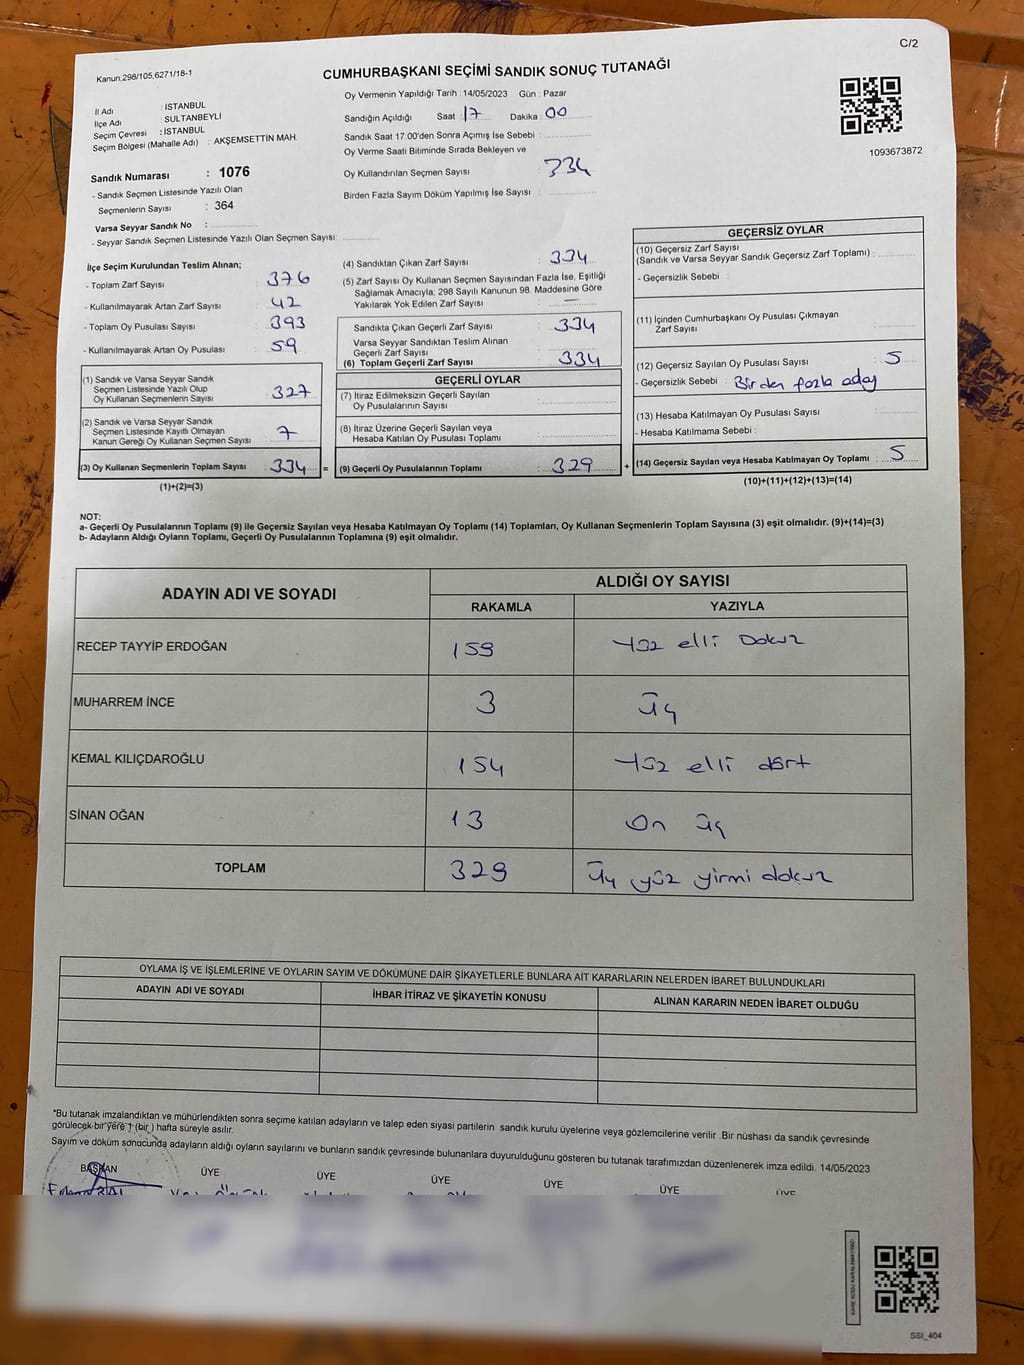 C/2
Kanun.298/105,6271/18-1
CUMHURBAŞKANI SEÇİMİ SANDIK SONUÇ TUTANAĞI
1093673872
İl Adı : İSTANBUL
İlçe Adı : SULTANBEYLİ
Seçim Çevresi : İSTANBUL
Seçim Bölgesi (Mahalle Adı) : AKŞEMSETTİN MAH.
Sandık Numarası : 1076
- Sandık Seçmen Listesinde Yazılı Olan
Seçmenlerin Sayısı : 364
Varsa Seyyar Sandık No :
- Seyyar Sandık Seçmen Listesinde Yazılı Olan Seçmen Sayısı:
Oy Vermenin Yapıldığı Tarih : 14/05/2023 Gün : Pazar
Sandığın Açıldığı Saat : 17 Dakika : 00
Sandık Saat 17:00'den Sonra Açımış İse Sebebi :
Oy Verme Saati Bitiminde Sırada Bekleyen ve
Oy Kullandırılan Seçmen Sayısı : 334
Birden Fazla Sayım Döküm Yapılmış İse Sayısı :
İlçe Seçim Kurulundan Teslim Alınan;
- Toplam Zarf Sayısı : 376
- Kullanılmayarak Artan Zarf Sayısı : 42
- Toplam Oy Pusulası Sayısı : 393
- Kullanılmayarak Artan Oy Pusulası : 59
(1) Sandık ve Varsa Seyyar Sandık
Seçmen Listesinde Yazılı Olup
Oy Kullanan Seçmenlerin Sayısı : 327
(2) Sandık ve Varsa Seyyar Sandık
Seçmen Listesinde Kayıtlı Olmayan
Kanun Gereği Oy Kullanan Seçmen Sayısı : 7
(3) Oy Kullanan Seçmenlerin Toplam Sayısı : 334 =
(1)+(2)=(3)
(4) Sandıktan Çıkan Zarf Sayısı : 334
(5) Zarf Sayısı Oy Kullanan Seçmen Sayısından Fazla İse, Eşitliği
Sağlamak Amacıyla; 298 Sayılı Kanunun 98. Maddesine Göre
Yakılarak Yok Edilen Zarf Sayısı : —
Sandıkta Çıkan Geçerli Zarf Sayısı : 334
Varsa Seyyar Sandıktan Teslim Alınan
Geçerli Zarf Sayısı :
(6) Toplam Geçerli Zarf Sayısı : 334
GEÇERLİ OYLAR
(7) İtiraz Edilmeksizin Geçerli Sayılan
Oy Pusulalarının Sayısı :
(8) İtiraz Üzerine Geçerli Sayılan veya
Hesaba Katılan Oy Pusulası Toplamı :
(9) Geçerli Oy Pusulalarının Toplamı : 329 +
GEÇERSİZ OYLAR
(10) Geçersiz Zarf Sayısı
(Sandık ve Varsa Seyyar Sandık Geçersiz Zarf Toplamı) :
- Geçersizlik Sebebi :
(11) İçinden Cumhurbaşkanı Oy Pusulası Çıkmayan
Zarf Sayısı :
(12) Geçersiz Sayılan Oy Pusulası Sayısı : 5
- Geçersizlik Sebebi : Birden fazla aday
(13) Hesaba Katılmayan Oy Pusulası Sayısı :
- Hesaba Katılmama Sebebi :
(14) Geçersiz Sayılan veya Hesaba Katılmayan Oy Toplamı : 5
(10)+(11)+(12)+(13)=(14)
NOT:
a- Geçerli Oy Pusulalarının Toplamı (9) ile Geçersiz Sayılan veya Hesaba Katılmayan Oy Toplamı (14) Toplamları, Oy Kullanan Seçmenlerin Toplam Sayısına (3) eşit olmalıdır. (9)+(14)=(3)
b- Adayların Aldığı Oyların Toplamı, Geçerli Oy Pusulalarının Toplamına (9) eşit olmalıdır.
ADAYIN ADI VE SOYADI
ALDIĞI OY SAYISI
RAKAMLA YAZIYLA
RECEP TAYYİP ERDOĞAN 159 Yüz elli Dokuz
MUHARREM İNCE 3 Üç
KEMAL KILIÇDAROĞLU 154 Yüz elli dört
SİNAN OĞAN 13 On üç
TOPLAM 329 Üç yüz yirmi dokuz
OYLAMA İŞ VE İŞLEMLERİNE VE OYLARIN SAYIM VE DÖKÜMÜNE DAİR ŞİKAYETLERLE BUNLARA AİT KARARLARIN NELERDEN İBARET BULUNDUKLARI
ADAYIN ADI VE SOYADI İHBAR İTİRAZ VE ŞİKAYETİN KONUSU ALINAN KARARIN NEDEN İBARET OLDUĞU
*Bu tutanak imzalandıktan ve mühürlendikten sonra seçime katılan adayların ve talep eden siyasi partilerin sandık kurulu üyelerine veya gözlemcilerine verilir .Bir nüshası da sandık çevresinde
görülecek bir yere 1 (bir ) hafta süreyle asılır.
Sayım ve döküm sonucunda adayların aldığı oyların sayılarını ve bunların sandık çevresinde bulunanlara duyurulduğunu gösteren bu tutanak tarafımızdan düzenlenerek imza edildi. 14/05/2023
BAŞKAN ÜYE ÜYE ÜYE ÜYE ÜYE ÜYE
KARE KODU KARALAMAYINIZ!
SSI_404